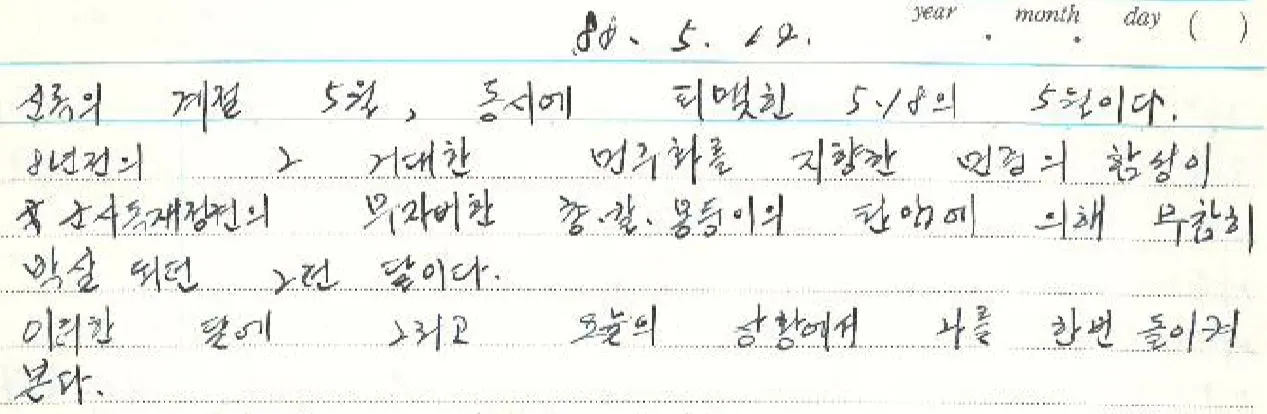 year month day ( )
88. 5. 12.
신록의 계절 5월, 동시에 피맺힌 5·18의 5월이다.
8년전의 그 거대한 민주화를 지향한 민중의 함성이
군사독재정권의 무자비한 총·칼·몽둥이의 탄압에 의해 무참히
박살 되던 그런 달이다.
이러한 달에 그리고 오늘의 상황에서 나를 한번 돌이켜
본다.